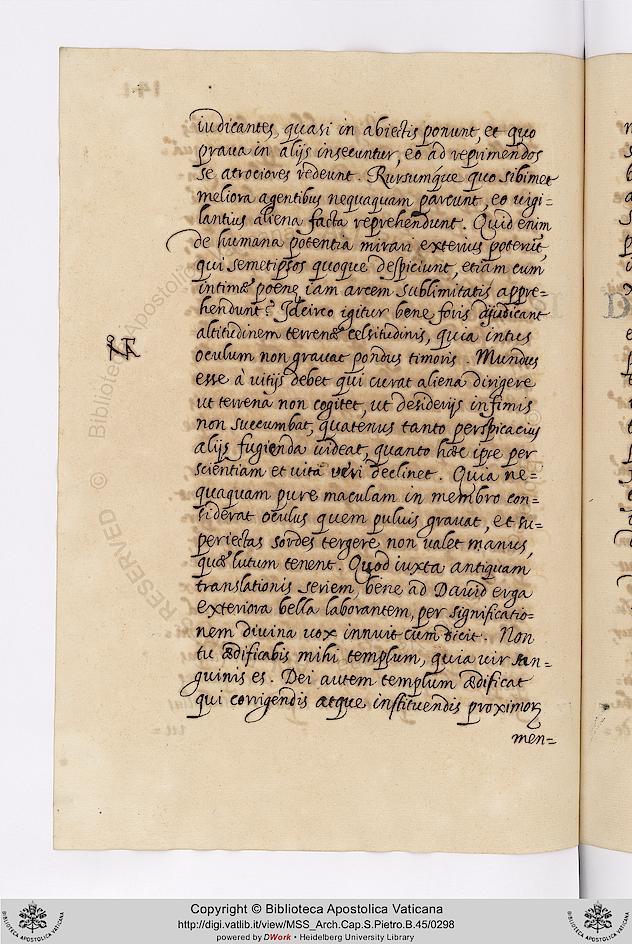 iudicantes, quasi in abiectis ponunt, et quo
praua in alijs insecuntur, eo ad reprimendos
se atrociores redeunt. Rursumque quo sibimet
meliora agentibus nequaquam parcunt, eo uigi=
lantius aliena facta reprehendunt. Quid enim
de humana potentia mirari exterius poterūt,
qui semetipsos quoque despiciunt, etiam cum
intimę poenę iam arcem sublimitatis appre=
hendunt? Idcirco igitur bene foris dijudicant
altitudinem terrenę celsitudinis, quia intus
oculum non grauat pondus timoris. Mundus
NF
esse à uitijs debet qui curat aliena dirigere
ut terrena non cogitet, ut desiderijs infimis
non succumbat, quatenus tanto perspicacius
alijs fugienda uideat, quanto hæc ipse per
scientiam et uitā veri declinet. Quia ne=
quaquam pure maculam in membro con=
siderat oculus quem puluis grauat, et su=
periectas sordes tergere non valet manus,
quæ lutum tenent. Quod iuxta antiquam
translationis seriem, bene ad Dauid erga
exteriora bella laborantem, per significatio=
nem diuina uox innuit cum dicit. Non
tu ædificabis mihi templum, quia uir san=
guinis es. Dei autem templum ædificat
qui corrigendis atque instituendis proximoꝝ
men=
© Biblioteca Apostolica
RESERVED
Copyright © Biblioteca Apostolica Vaticana
http://digi.vatlib.it/view/MSS_Arch.Cap.S.Pietro.B.45/0298
powered by DWork • Heidelberg University Library
BIBLIOTECA APOSTOLICA VATICANA
BIBLIOTECA APOSTOLICA VATICANA